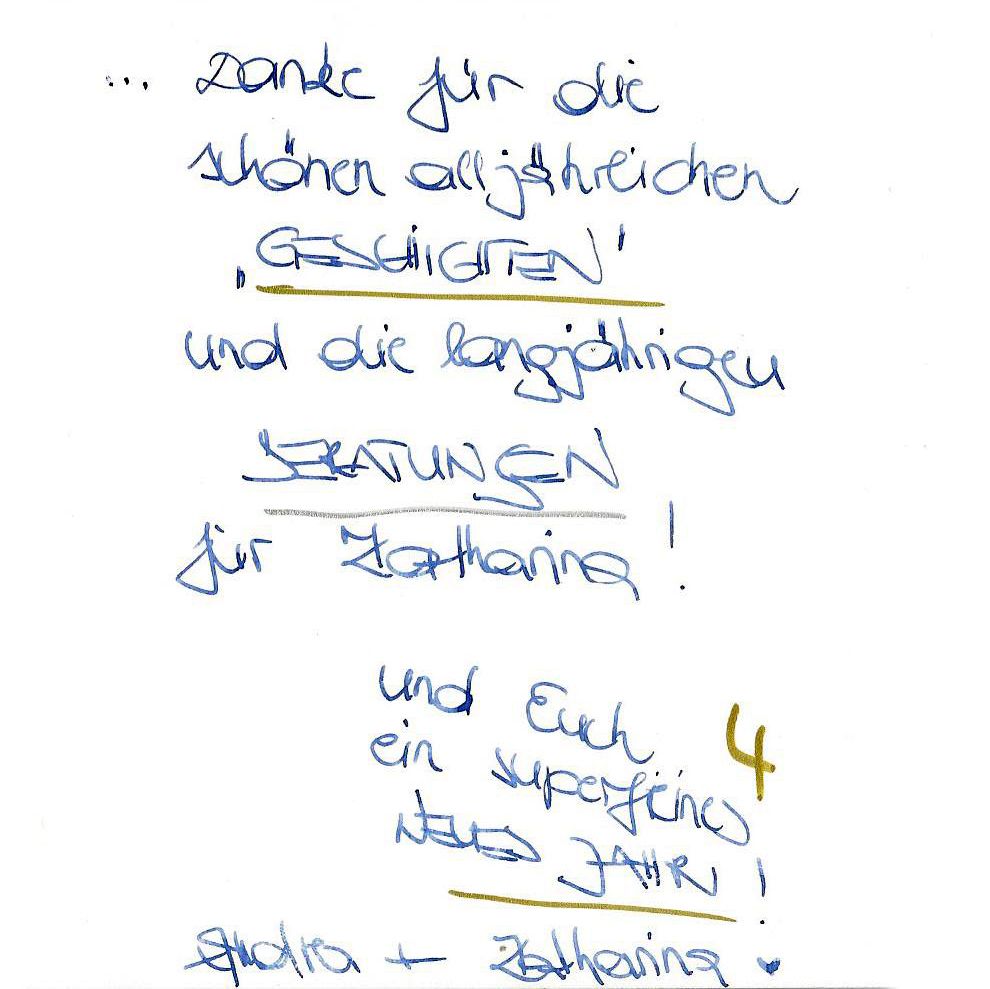 ... Danke für die
schönen alljährlichen
„GESCHICHTEN"
und die langjährigen
BERATUNGEN
für Katharina!
und Euch 4
ein superfeines
NEUES JAHR!
Andrea + Katharina